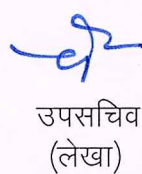 उपसचिव
(लेखा)